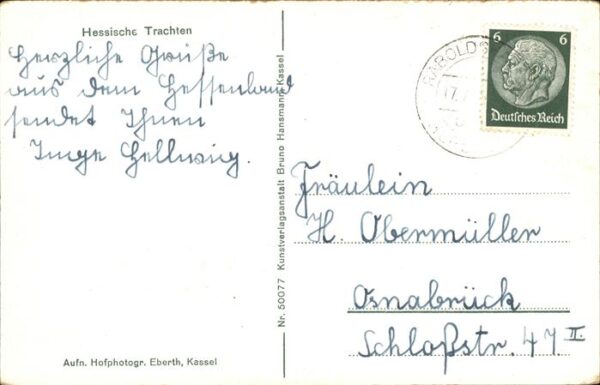 Hessische Trachten
Herzliche Grüße
aus dem Hessenland
sendet Ihnen
Inge Hellwig.
Aufn. Hofphotogr. Eberth, Kassel
Nr. 50077 Kunstverlagsanstalt Bruno Hansmann, Kassel
6 6
Deutsches Reich
Fräulein
H. Obermüller
Osnabrück
Schloßstr. 47 II.